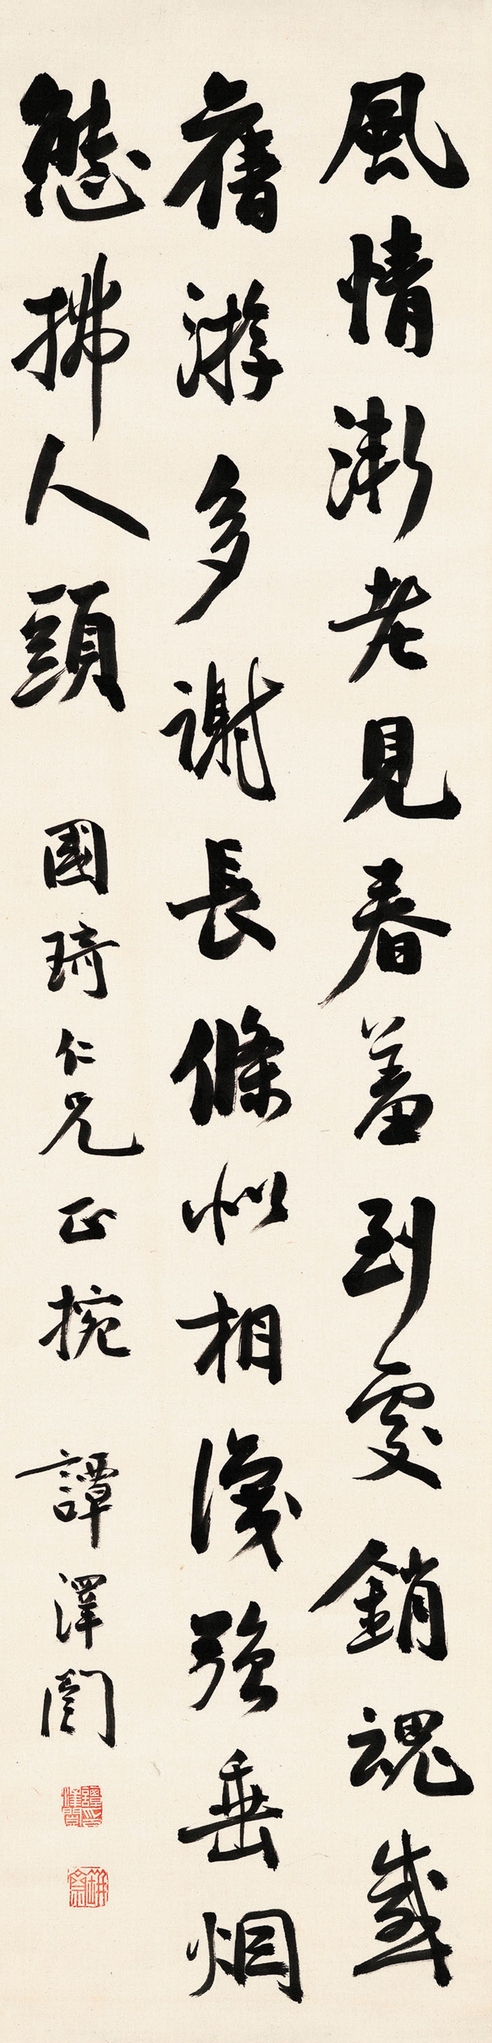 風情漸老見春羞到處銷魂感
舊游多謝長條似相識強垂烟
態拂人頭
國琦仁兄正捥
譚澤闓